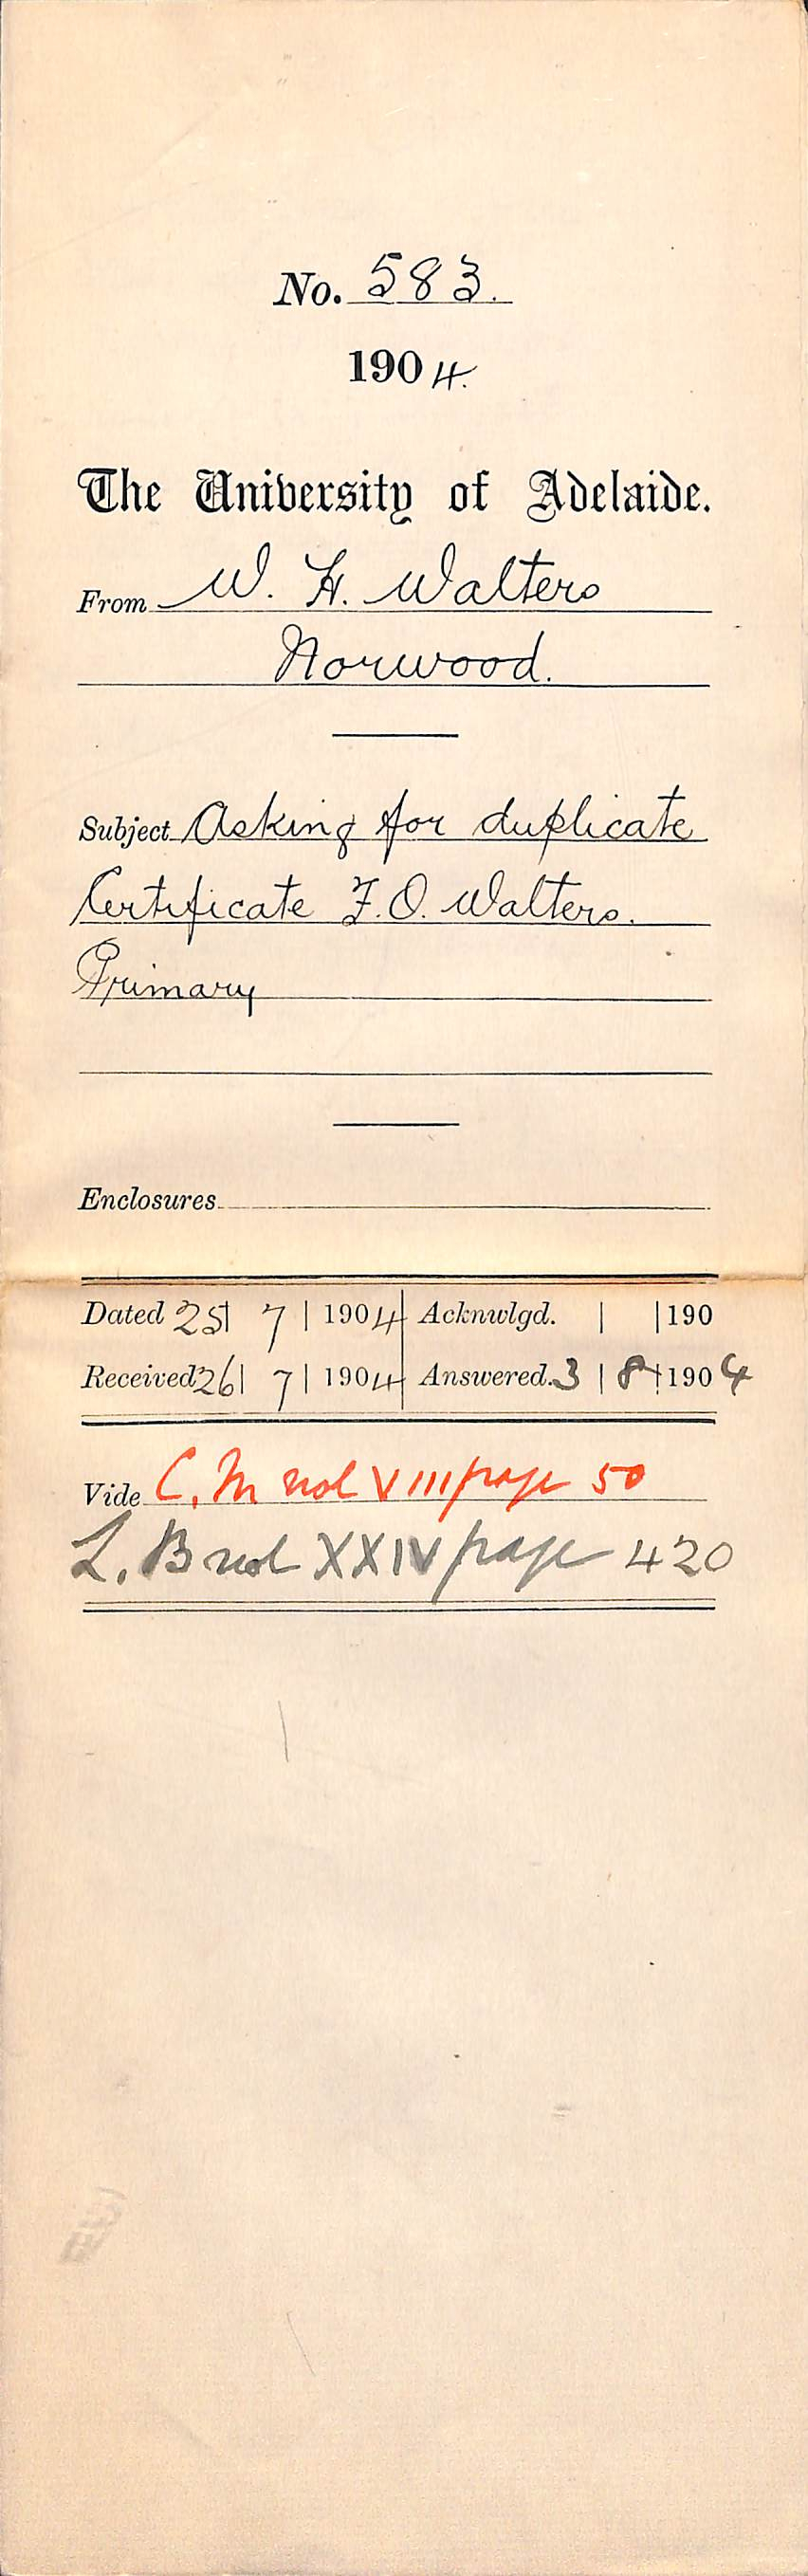 No. 583.
1904.
The University of Adelaide.
From W. H. Walters
Norwood.
Subject Asking for duplicate
Certificate F.O. Walters.
Primary
Enclosures
Dated 25| 7 | 1904 Acknwlgd. | |190
Received 26| 7 | 1904 Answered. 3 | 8 |1904
Vide C. M vol VIII page 50
L. B vol XXIV page 420